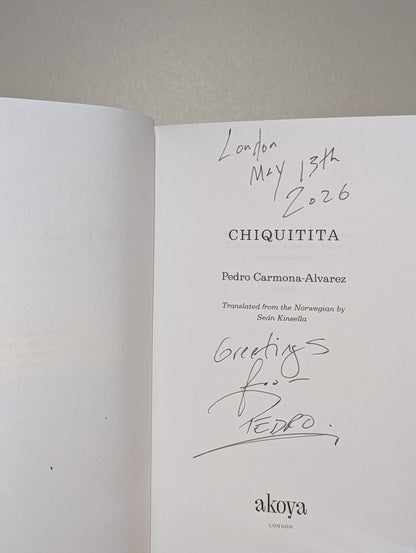 London
May 13th
2026
CHIQUITITA
Pedro Carmona-Alvarez
Translated from the Norwegian by
Seán Kinsella
Greetings
from
PEDRO.
akoya
LONDON